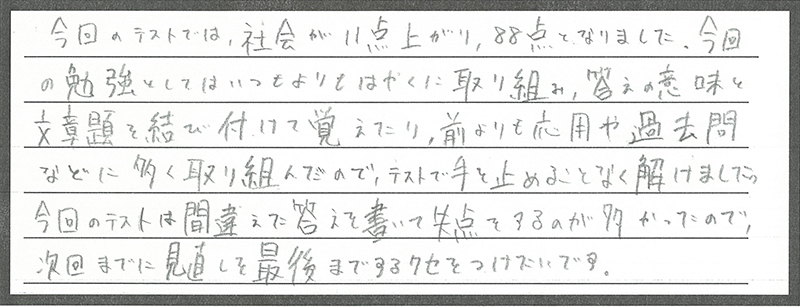 今回のテストでは、社会が11点上がり、88点となりました。今回
の勉強としてはいつもよりもはやくに取り組み、答えの意味と
文章題を結び付けて覚えたり、前よりも応用や過去問
などに多く取り組んだので、テストで手を止めることなく解けました。
今回のテストは間違えた答えを書いて失点をするのが多かったので、
次回までに見直しを最後までするクセをつけたいです。